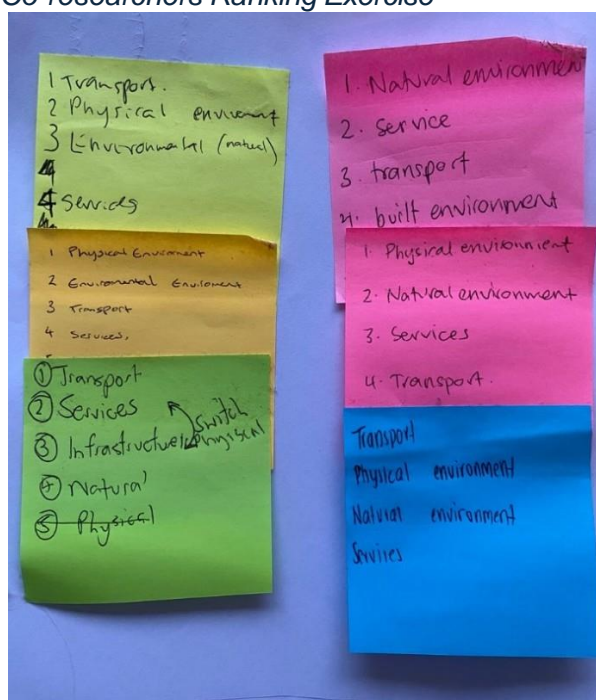 Co-researchers Ranking Exercise
1 Transport.
2 Physical
3 Environmental (natural)
4
4 Services
1 Physical Enviroment
2 Enviromental Enviroment
3 Transport
4 Services,
① Transport
② Services
Switch
③ Infrastructure/Physical
④ Natural
⑤ Physical
1. Natural environment
2. Service
3. transport
4. built environment
1. Physical environment
2. Natural environment
3. Services
4. Transport.
Transport
Physical environment
Natural environment
Services